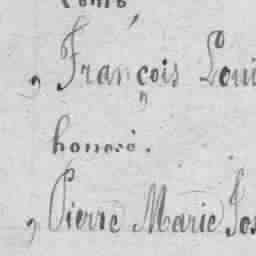 „ François Loui
honoré.
„ Pierre Marie Jos